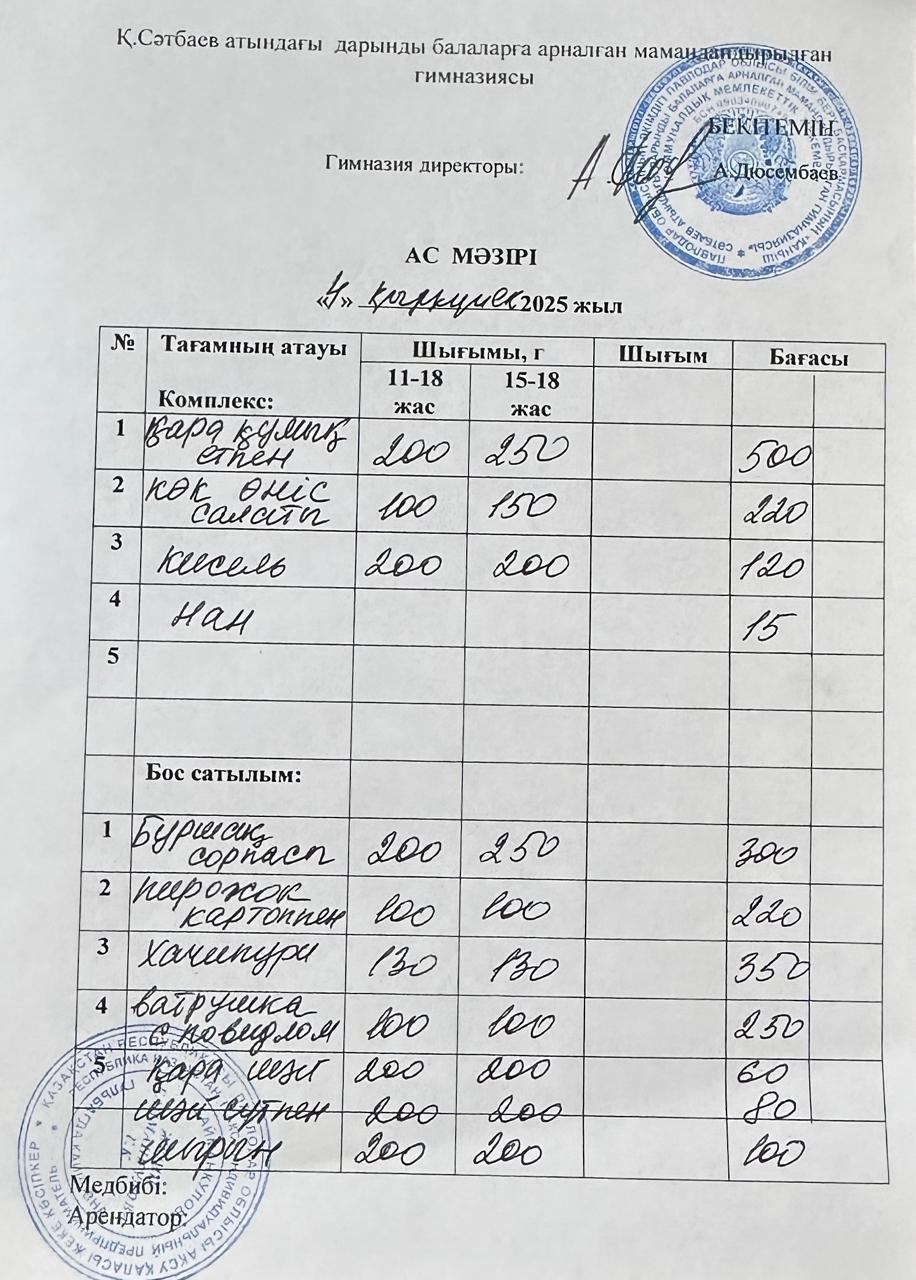 Қ.Сәтбаев атындағы дарынды балаларға арналған мамандандырылған
гимназиясы
БЕКІТЕМІН
Гимназия директоры: А.Дюсембаев
АС МӘЗІРІ
«4» қыркүйек 2025 жыл
№ Тағамның атауы Шығымы, г Шығым Бағасы
Комплекс: 11-18 жас 15-18 жас
1 Қара құмық
етпен 200 250 500
2 көк өніс
салаты 100 150 220
3 кисель 200 200 120
4 нан 15
5
Бос сатылым:
1 Бұршақ
сорпасы 200 250 300
2 пирожок
картоппен 100 100 220
3 Хачипури 130 130 350
4 ватрушка
с повидлом 100 100 250
5 қара шәй 200 200 60
шәй сүтпен 200 200 80
шырын 200 200 100
Медбибі:
Арендатор: